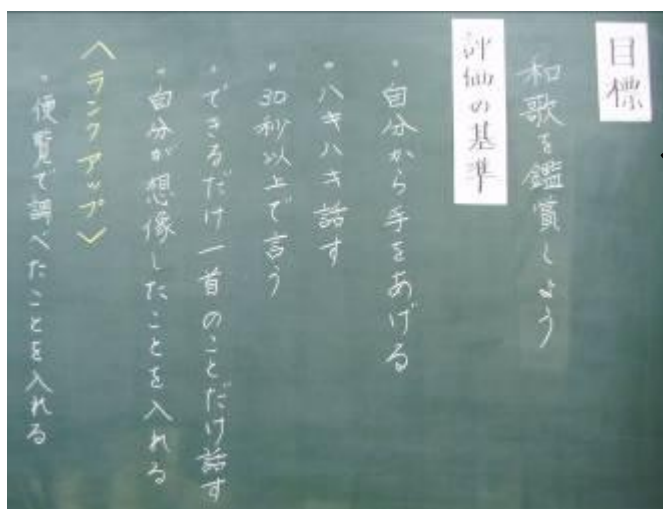 目標
和歌を鑑賞しよう
評価の基準
・自分から手をあげる
・ハキハキ話す
・30秒以上で言う
・できるだけ一首のことだけ話す
・自分が想像したことを入れる
〈ランクアップ〉
・便覧で調べたことを入れる